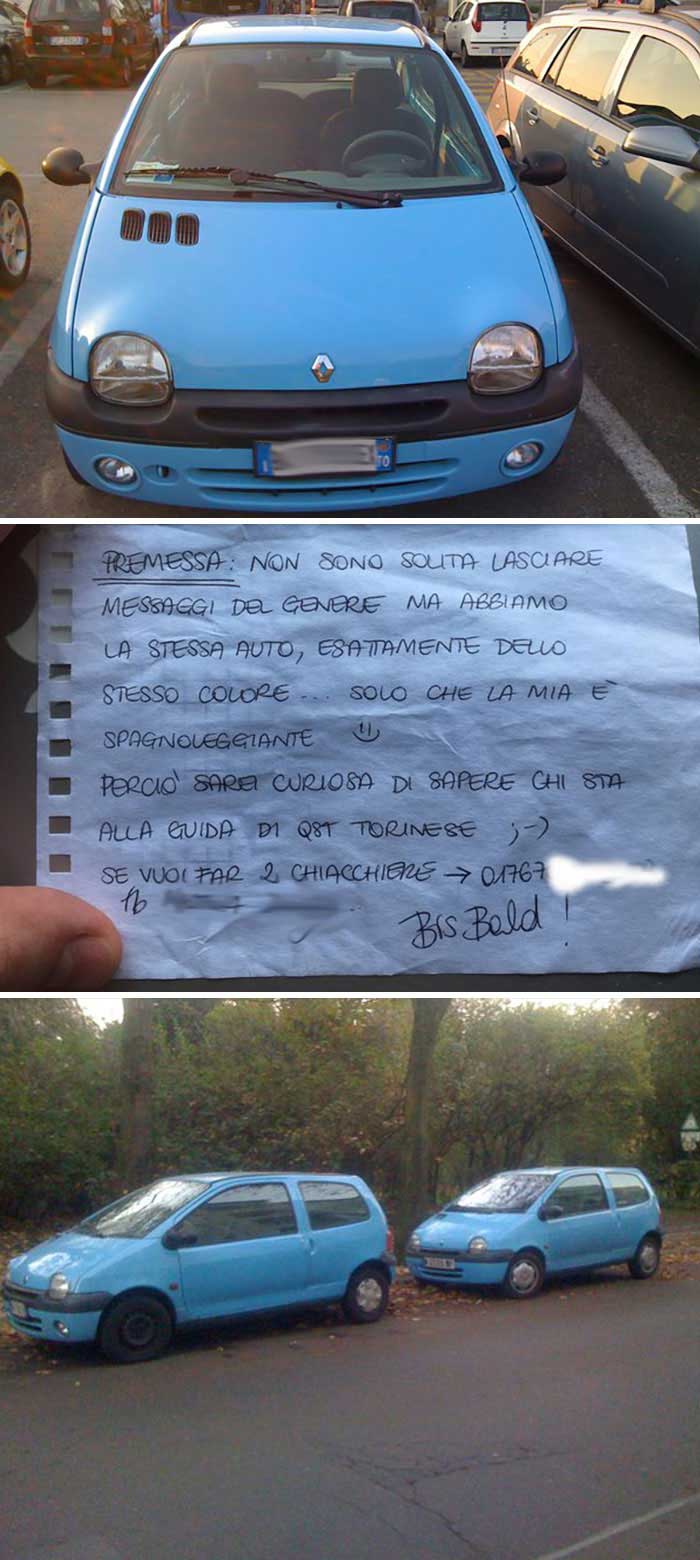 TO
PREMESSA: NON SONO SOLITA LASCIARE
MESSAGGI DEL GENERE MA ABBIAMO
LA STESSA AUTO, ESATTAMENTE DELLO
STESSO COLORE... SOLO CHE LA MIA È
SPAGNOLEGGIANTE
PERCIÒ SAREI CURIOSA DI SAPERE CHI STA
ALLA GUIDA DI QST TORINESE ;-)
SE VUOI FAR 2 CHIACCHIERE → 01767
fb
Bis Bald!